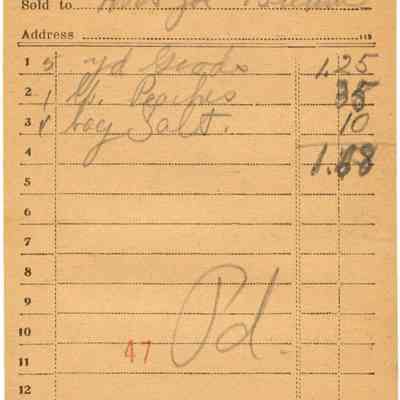 Sold to
Address
1 5 yd Goods 1.25
2 1 Lb. Peaches 35
3 1 Bag Salt. 10
4 1.68
5
6
7
8
9
10
47 Pd.
11
12